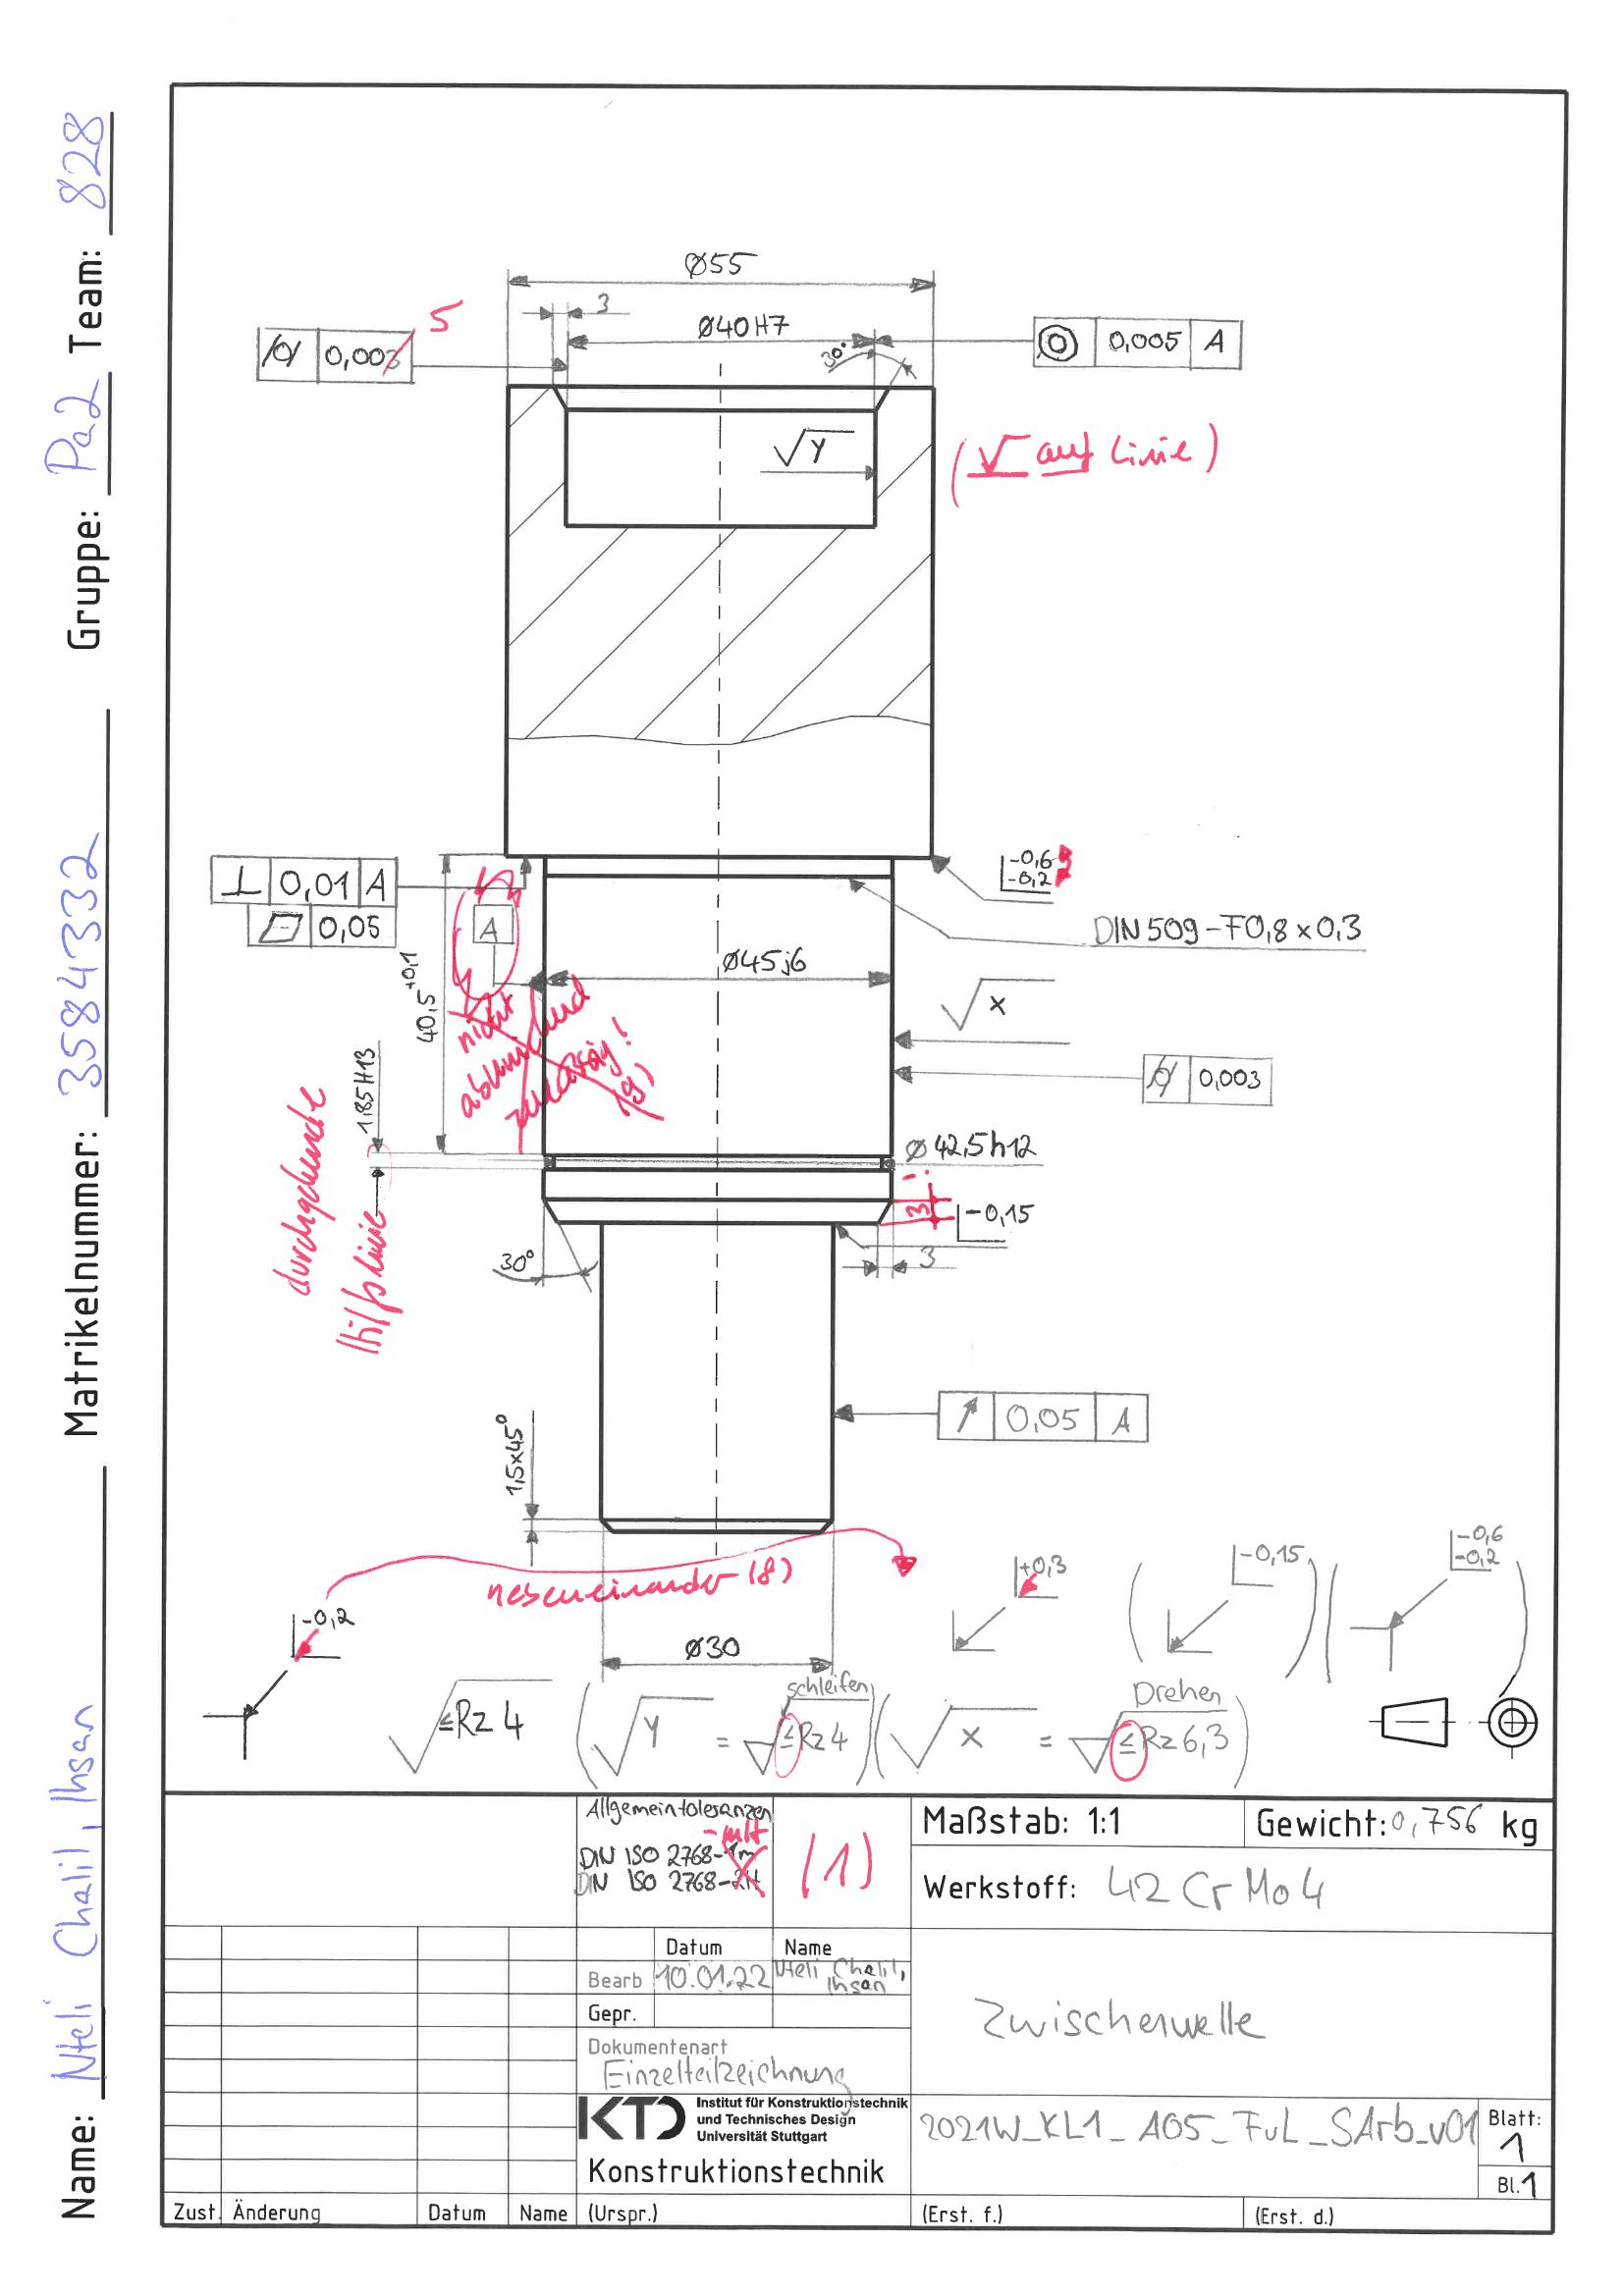 Name: Nteli Chalil, Ihsan Matrikelnummer: 3584332 Gruppe: Pa2 Team: 828
Ø55
3
5
Ø40H7
0,003
30°
0,005 A
√Y
(√ auf Linie)
⊥ 0,01 A
0,05
A
-0,6
-0,2
DIN 509-F0,8x0,3
40,5 +0,1
Ø45j6
√x
nicht
zulässig!
(9)
1,85H13
0,003
Ø42,5h12
durchgehende
Hilfslinie
3
-0,15
30°
3
0,05 A
1,5x45°
nebeneinander (8)
-0,2
+0,3
(-0,15)
(-0,6
-0,2)
Ø30
√≤Rz 4 (√Y = √ schleifen ≤Rz4) (√x = √ Drehen ≤Rz6,3)
Allgemeintoleranzen
-mH
DIN ISO 2768-1m
DIN ISO 2768-2H
(1)
Maßstab: 1:1
Gewicht: 0,756 kg
Werkstoff: 42CrMo4
Datum Name
Bearb 10.01.22 Nteli Chalil,
Ihsan
Gepr.
Zwischenwelle
Dokumentenart
Einzelteilzeichnung
KTD Institut für Konstruktionstechnik
und Technisches Design
Universität Stuttgart
Konstruktionstechnik
2021W_KL1_A05_FuL_SArb_v01
Blatt:
1
Bl.1
Zust. Änderung Datum Name (Urspr.) (Erst. f.) (Erst. d.)